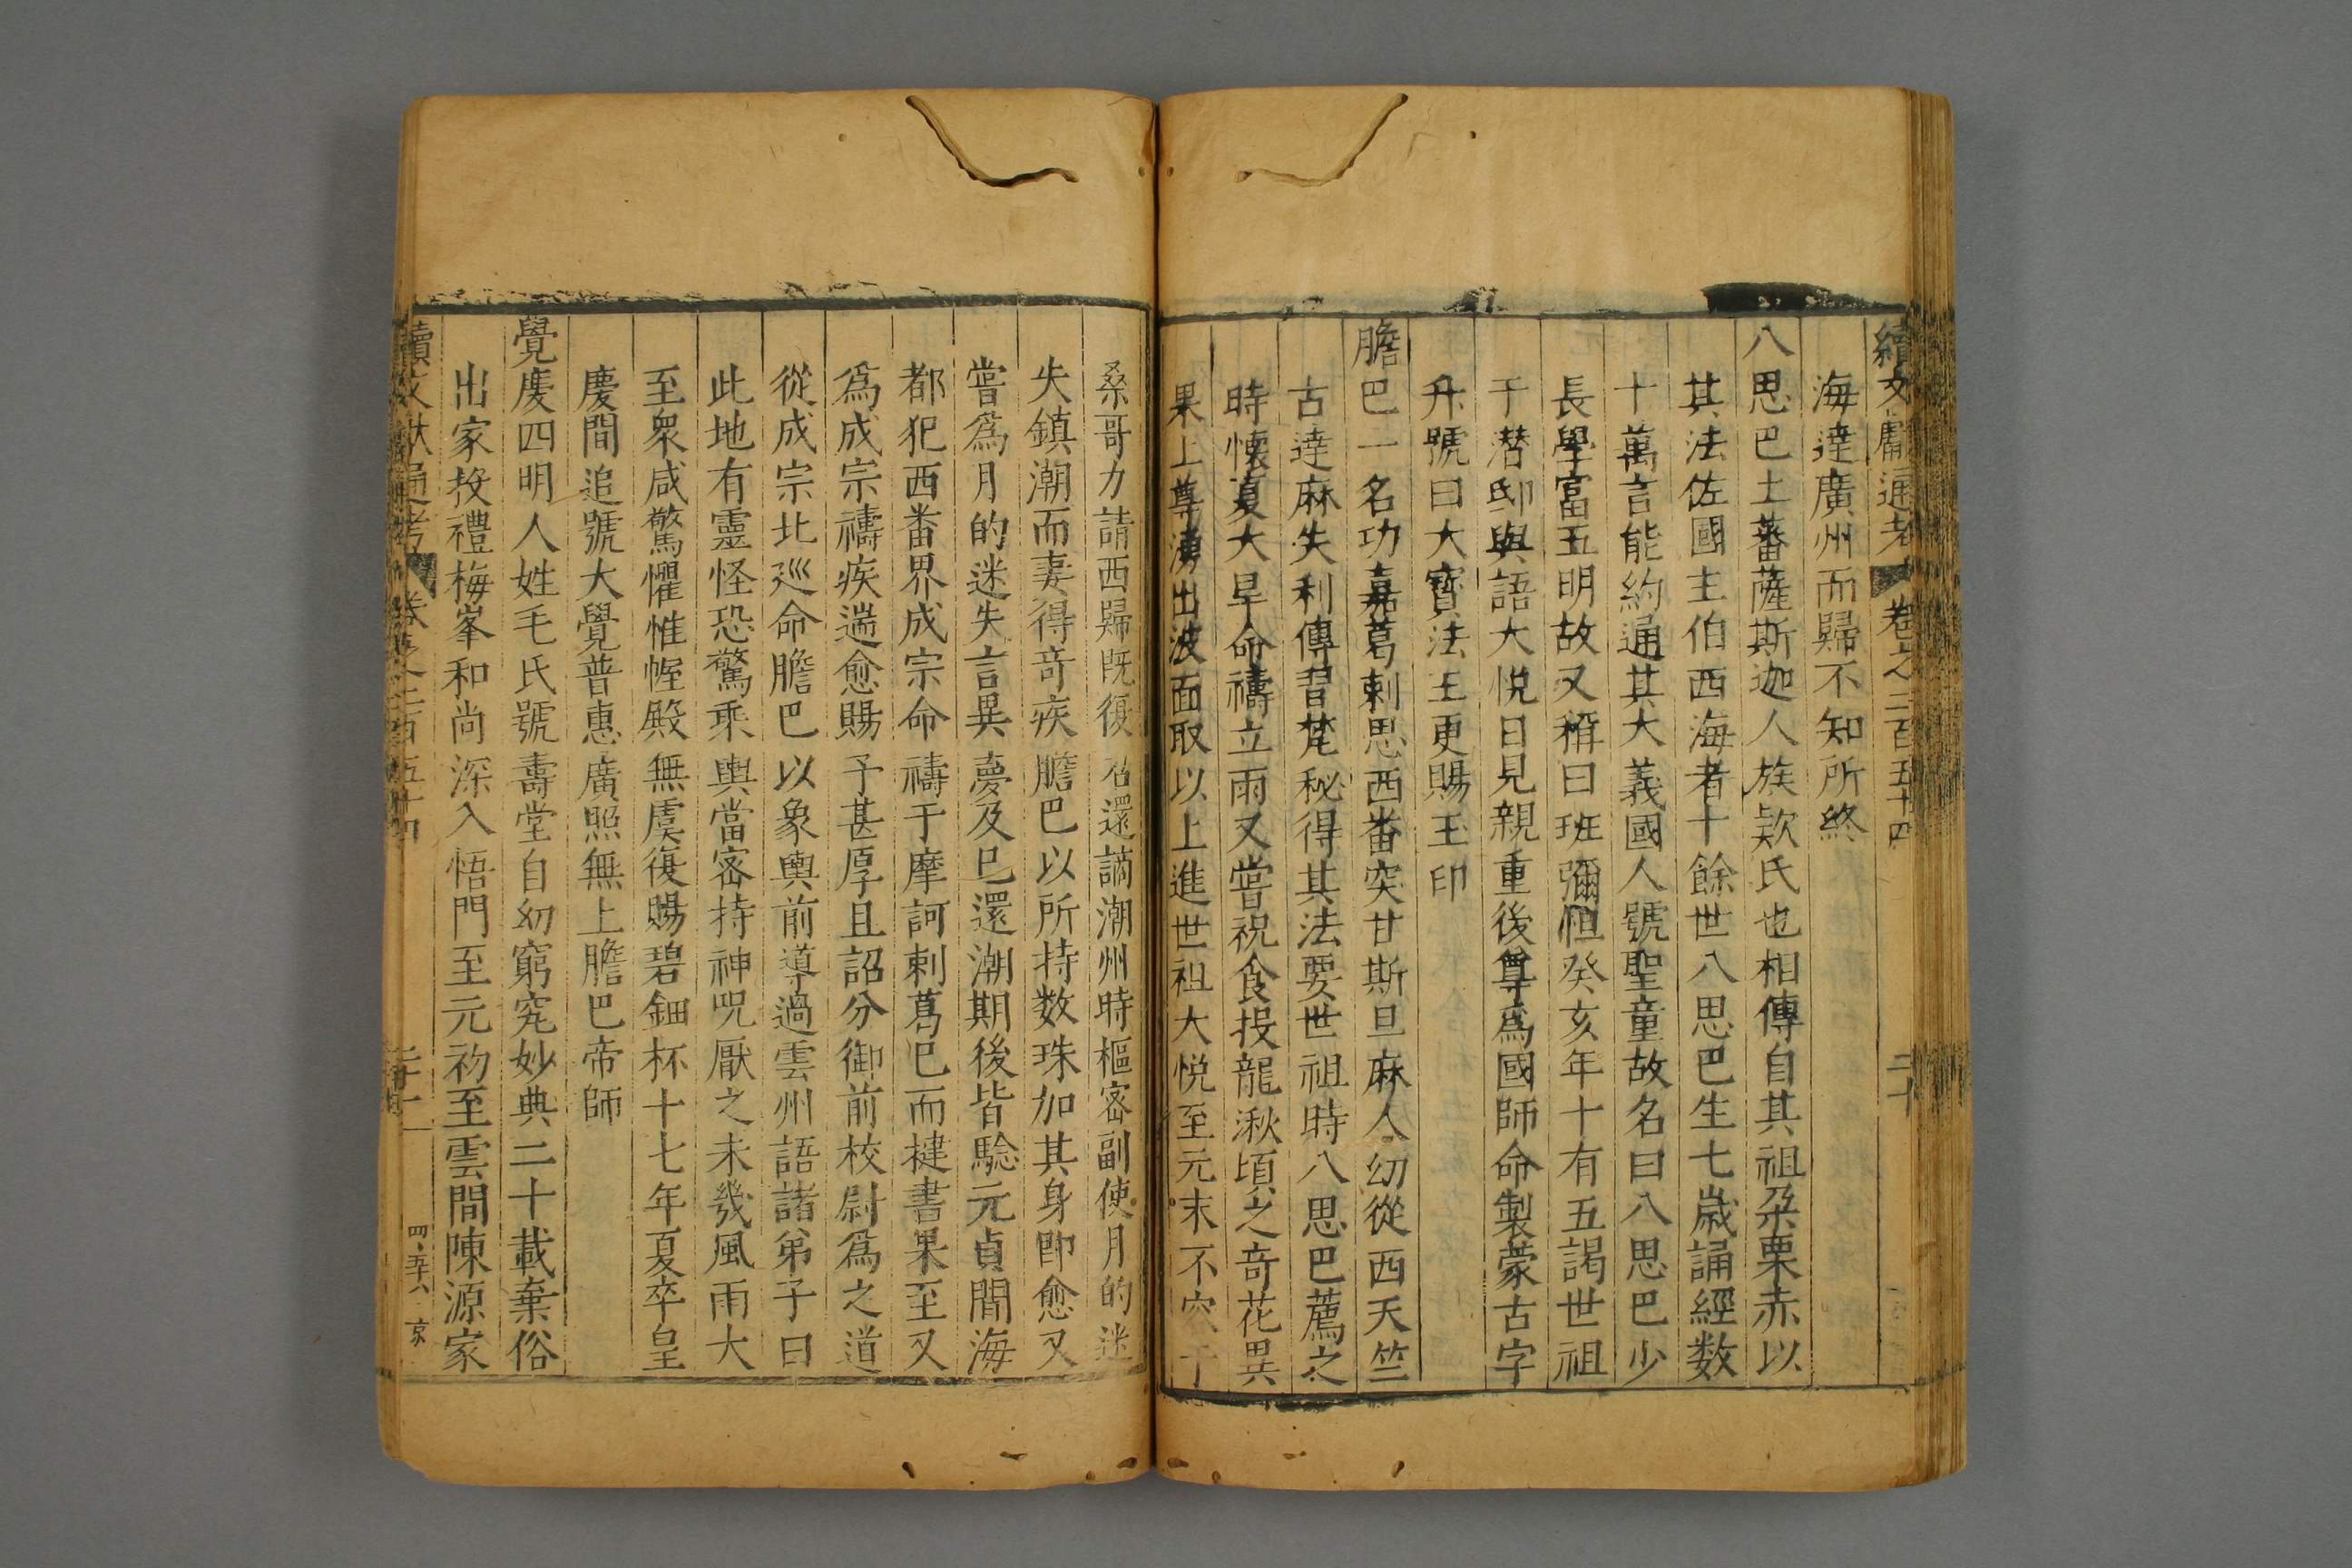 續文獻通考 卷之二百五十四 二十
海達廣州而歸不知所終
八思巴土蕃薩斯迦人族欵氏也相傳自其祖朶栗赤以
其法佐國主伯西海者十餘世八思巴生七歳誦經数
十萬言能約通其大義國人號聖童故名曰八思巴少
長學富五明故又稱曰班彌怛癸亥年十有五謁世祖
于潜邸與語大悦日見親重後尊爲國師命製蒙古字
升號曰大寳法王更賜玉印
膽巴一名功嘉葛剌思西畨突甘斯旦麻人幻從西天竺
古達麻失利傳習梵秘得其法要世祖時八思巴薦之
時懐夏大旱命禱立雨又嘗祝食投龍湫頃之奇花異
果上尊湧出波面取以上進世祖大悦至元末不穴于
桑哥力請西歸既復召還謫潮州時樞密副使月的迷
失鎮潮而妻得竒疾膽巴以所持数珠加其身即愈又
嘗爲月的迷失言異夢及已還潮期後皆騐元貞間海
都犯西畨界成宗命禱于摩訶剌葛已而捷書果至又
爲成宗禱疾遄愈賜予甚厚且詔分御前校尉爲之道
從成宗北廵命膽巴以象輿前導過雲州語諸弟子曰
此地有靈怪恐驚乘輿當密持神呪厭之未幾風雨大
至衆咸驚懼惟幄殿無虞復賜碧鈿杯十七年夏卒皇
慶間追號大覺普惠廣照無上膽巴帝師
覺慶四明人姓毛氏號壽堂自幻窮究妙典二十載棄俗
出家投禮梅峯和尚深入悟門至元初至雲間陳源家
續文獻通考 卷之二百五十四 二十一 京